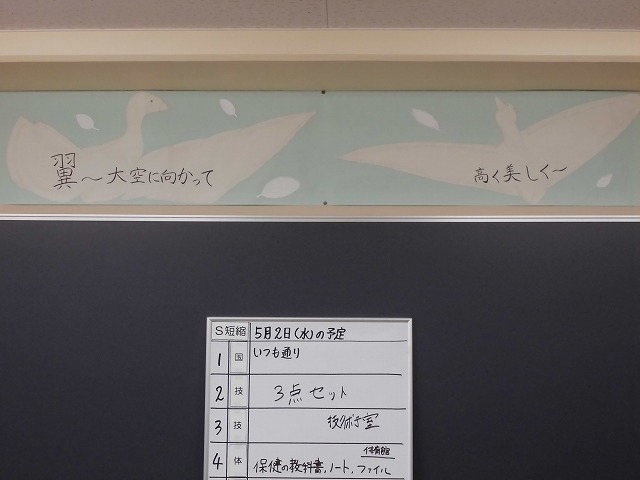 翼〜大空に向かって
高く美しく〜
S短縮 5月2日(水)の予定
1 国 いつも通り
2 技 3点セット
3 技
4 体 体育館
保健の教科書、ノート、ファイル